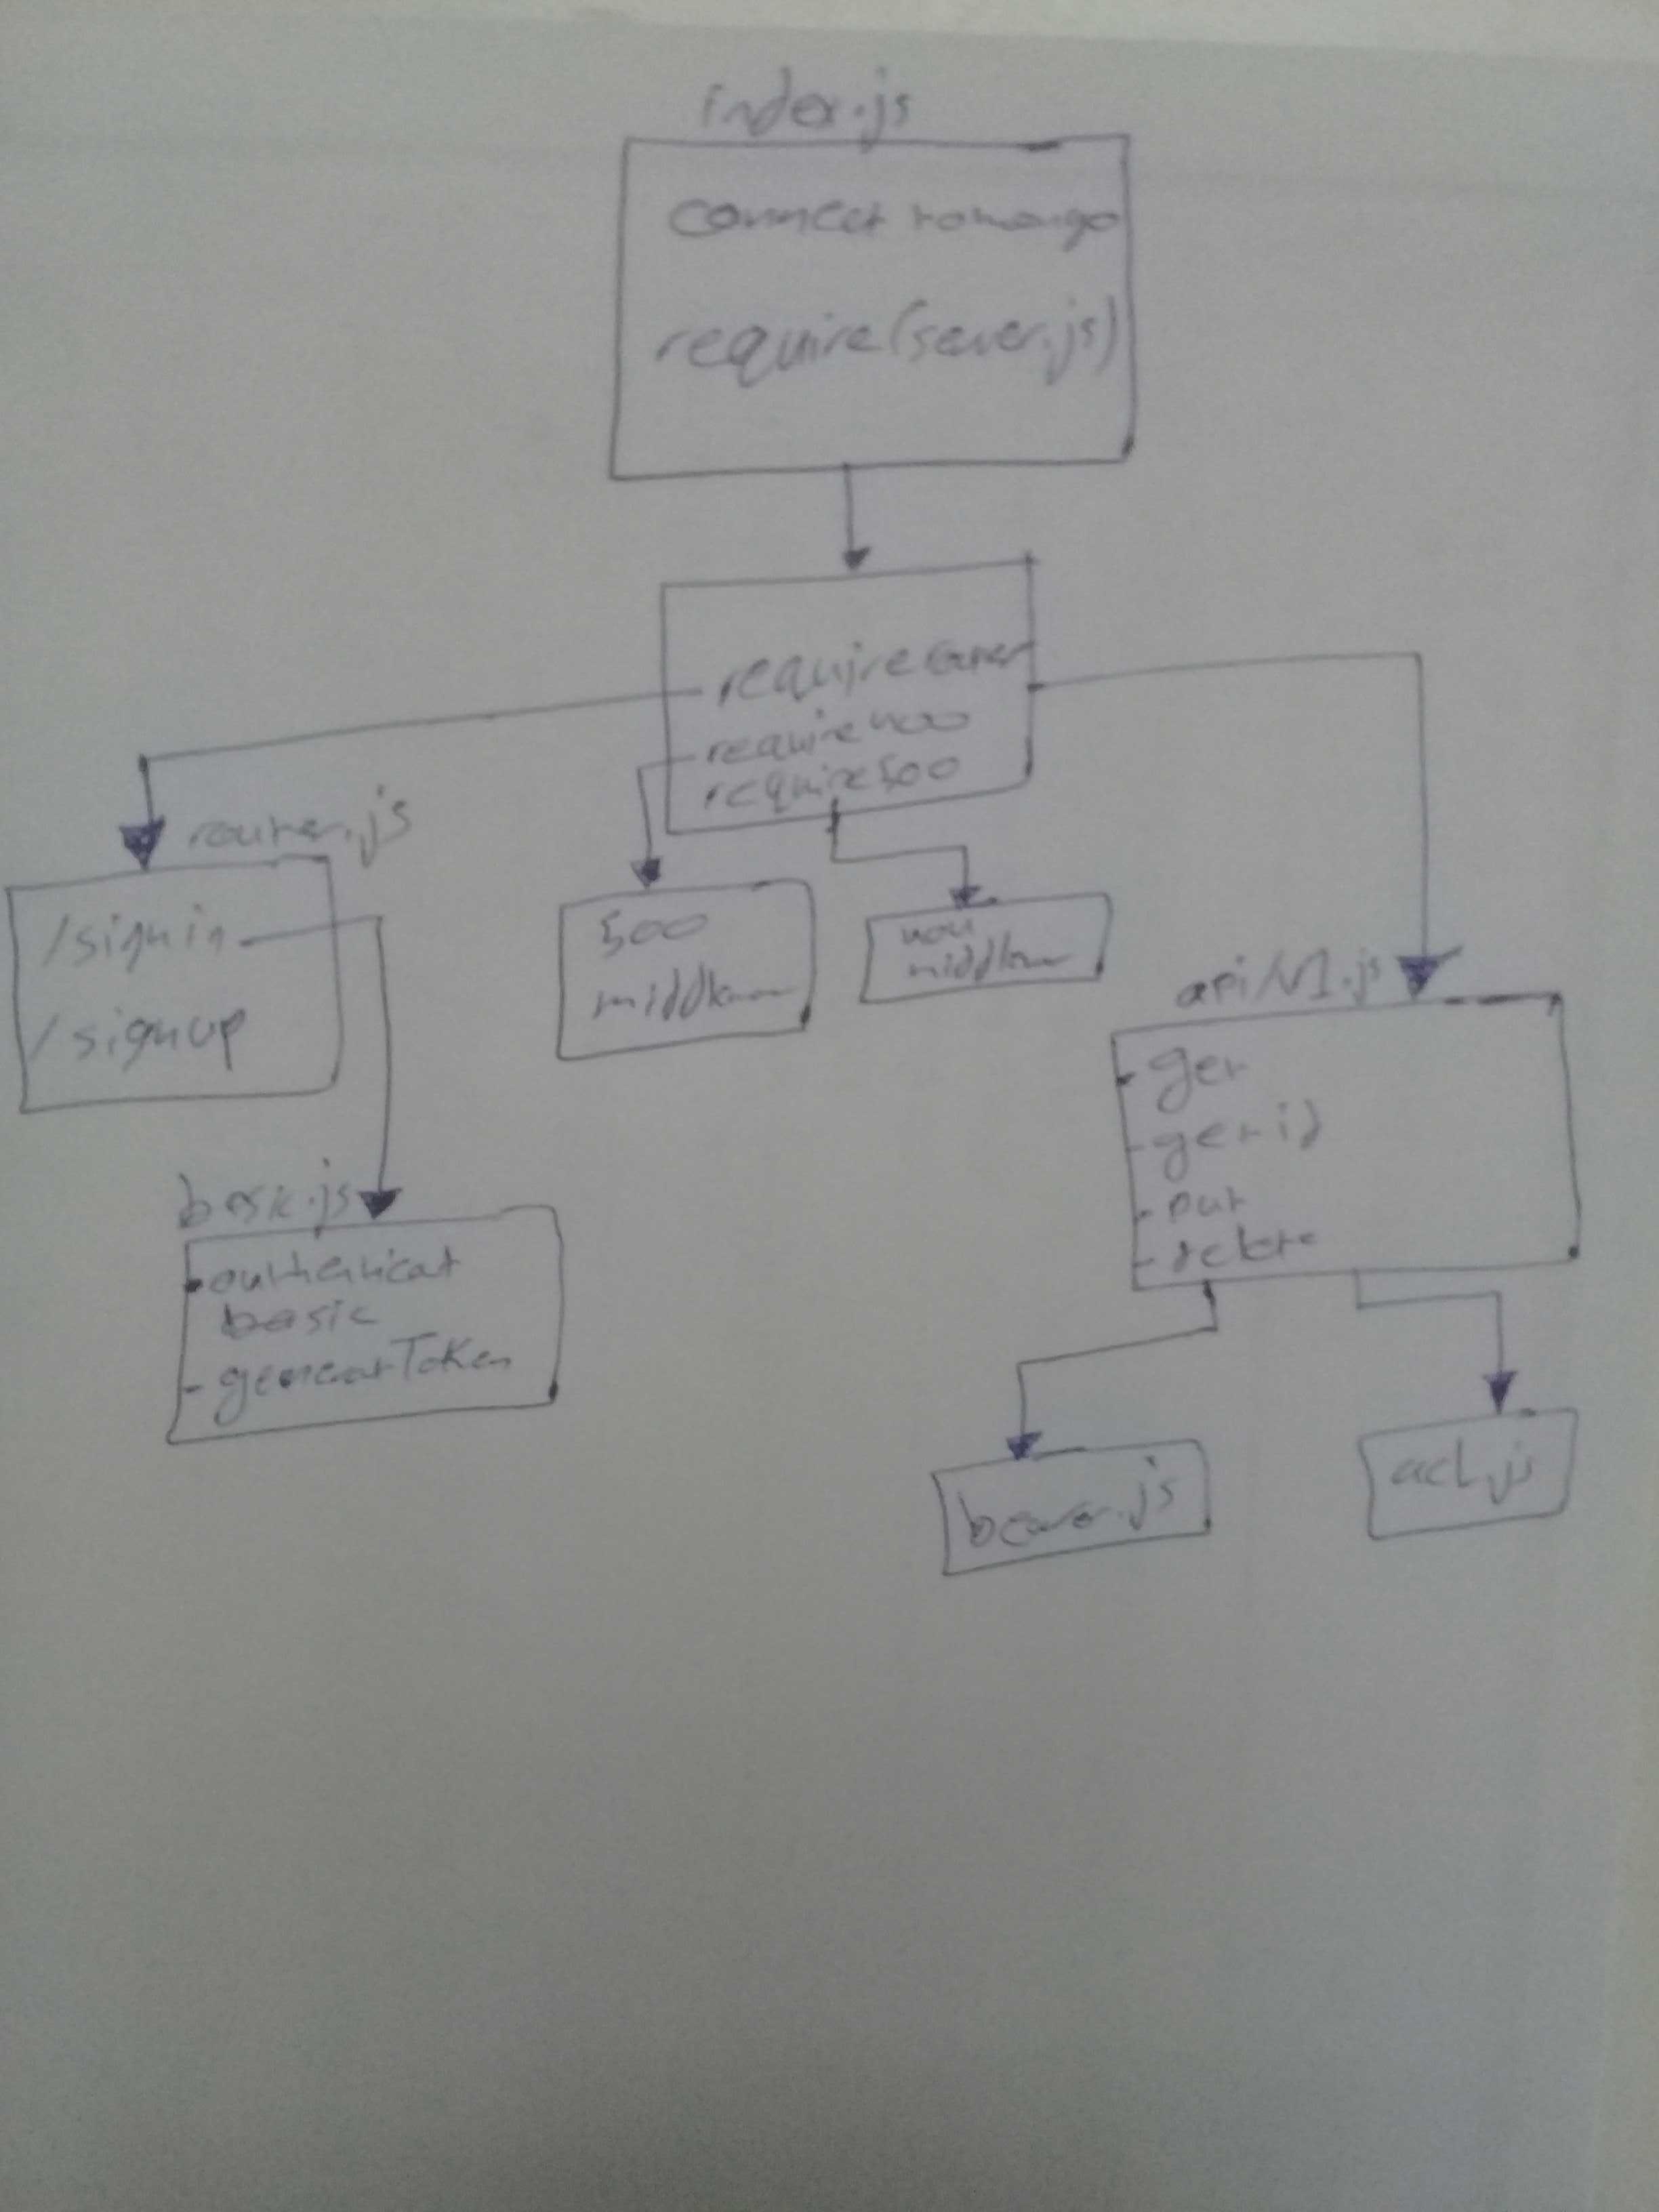 index.js
connect to mongo
require(sever.js)
require router
require 400
require 500
router.js
/signin
/signup
500
middlewar
middlewar
api/v1.js
- get
- get id
- put
- delete
basic.js
- authenticat
basic
- generatToken
bearer.js
acl.js